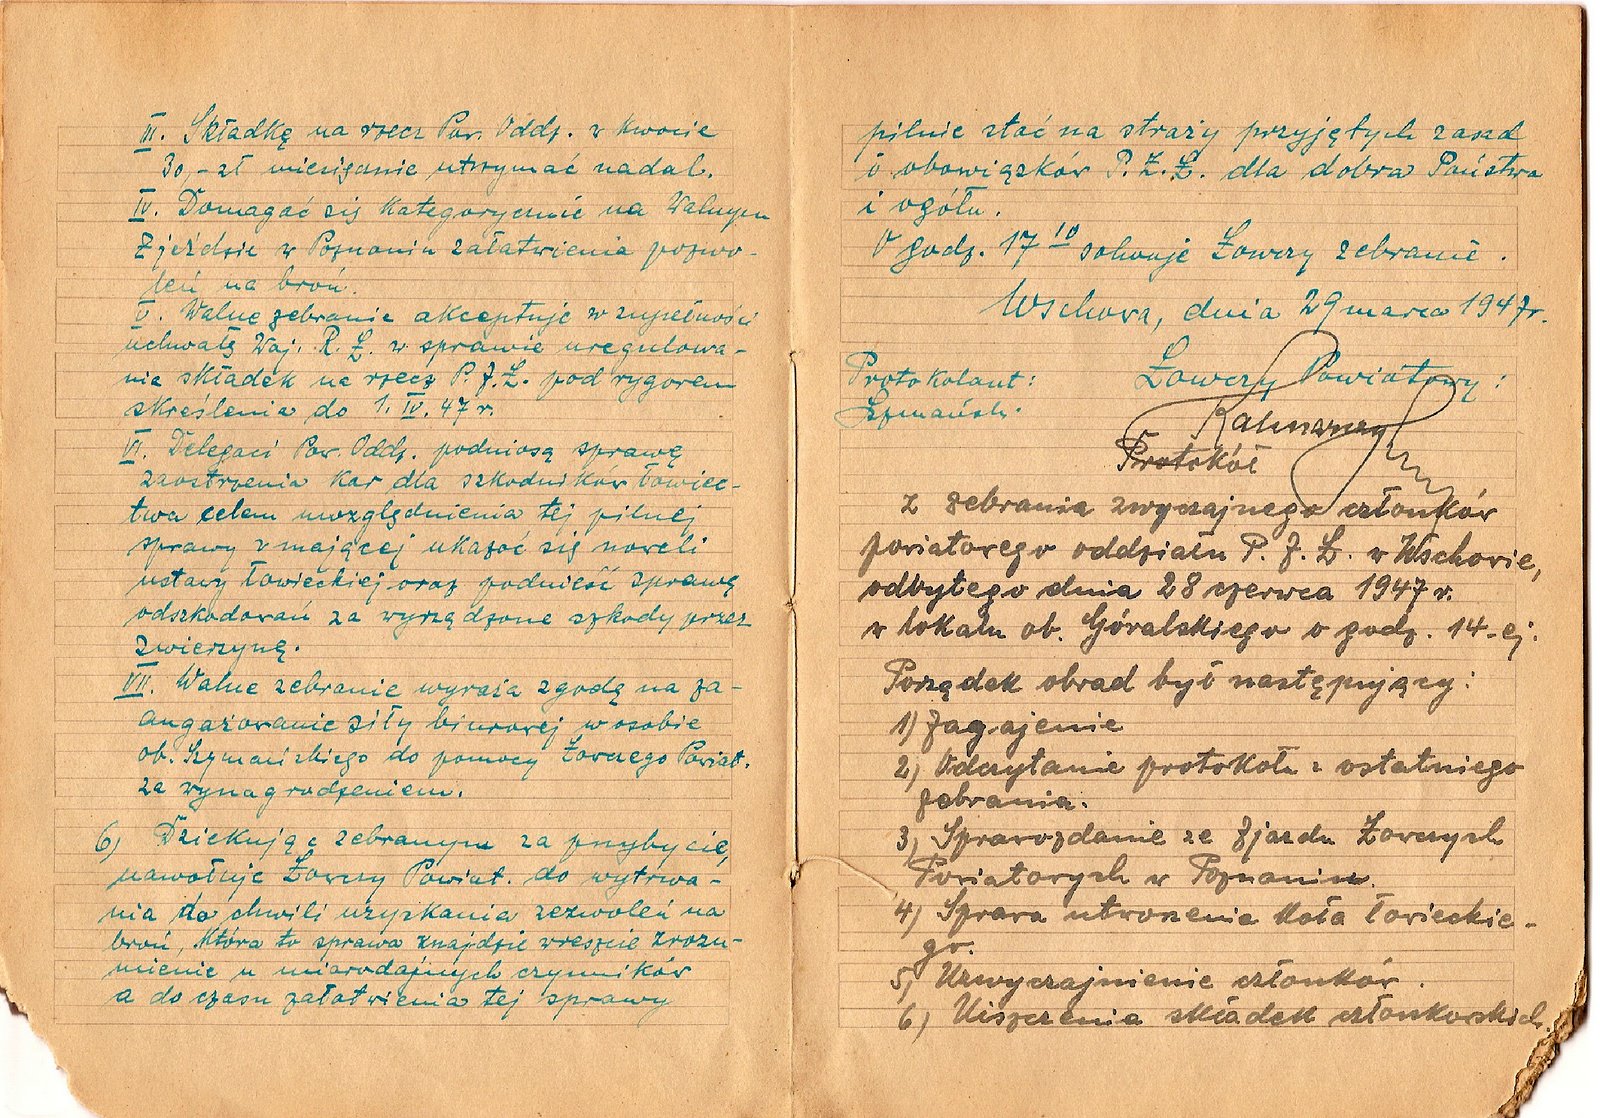 III. Składkę na rzecz Pow. Oddz. w kwocie
30,- zł miesięcznie utrzymać nadal.
IV. Domagać się kategorycznie na Walnym
Zjeździe w Poznaniu załatwienia pozwo-
leń na broń.
V. Walne zebranie akceptuje w zupełności
uchwałę Woj. R. Ł. w sprawie uregulowa-
nia składek na rzecz P.Z.Ł. pod rygorem
skreślenia do 1. IV. 47 r.
VI. Delegaci Pow. Oddz. podniosą sprawę
zaostrzenia kar dla szkodników łowiec-
twa celem uwzględnienia tej pilnej
sprawy w mającej ukazać się noweli
ustawy łowieckiej oraz podnieść sprawę
odszkodowań za wyrządzone szkody przez
zwierzynę.
VII. Walne zebranie wyraża zgodę na za-
angażowanie siły biurowej w osobie
ob. Szymańskiego do pomocy Łowczego Powiat.
za wynagrodzeniem.
6) Dziekując zebranym za przybycie,
nawołuje Łowczy Powiat. do wytrwa-
nia do chwili uzyskania zezwoleń na
broń, która to sprawa znajdzie wreszcie zrozu-
mienie u miarodajnych czynników
a do czasu załatwienia tej sprawy
pilnie stać na straży przyjętych zasad
i obowiązków P.Z.Ł. dla dobra Państwa
i ogółu.
O godz. 17 10 solwuje Łowczy zebranie.
Wschowa, dnia 29 marca 1947 r.
Protokolant: Łowczy Powiatowy:
Szymański
Protokół
z zebrania zwyczajnego członków
powiatowego oddziału P. Z. Ł. w Wschowie,
odbytego dnia 28 czerwca 1947 r.
w lokalu ob. Góralskiego o godz. 14-ej.
Porządek obrad był następujący:
1) Zagajenie
2) Odczytanie protokołu z ostatniego
zebrania.
3) Sprawozdanie ze Zjazdu Łowczych
Powiatowych w Poznaniu.
4) Sprawa utworzenia Koła Łowieckie-
go.
5) Uzwyczajnienie członków.
6) Uiszczenia składek członkowskich.